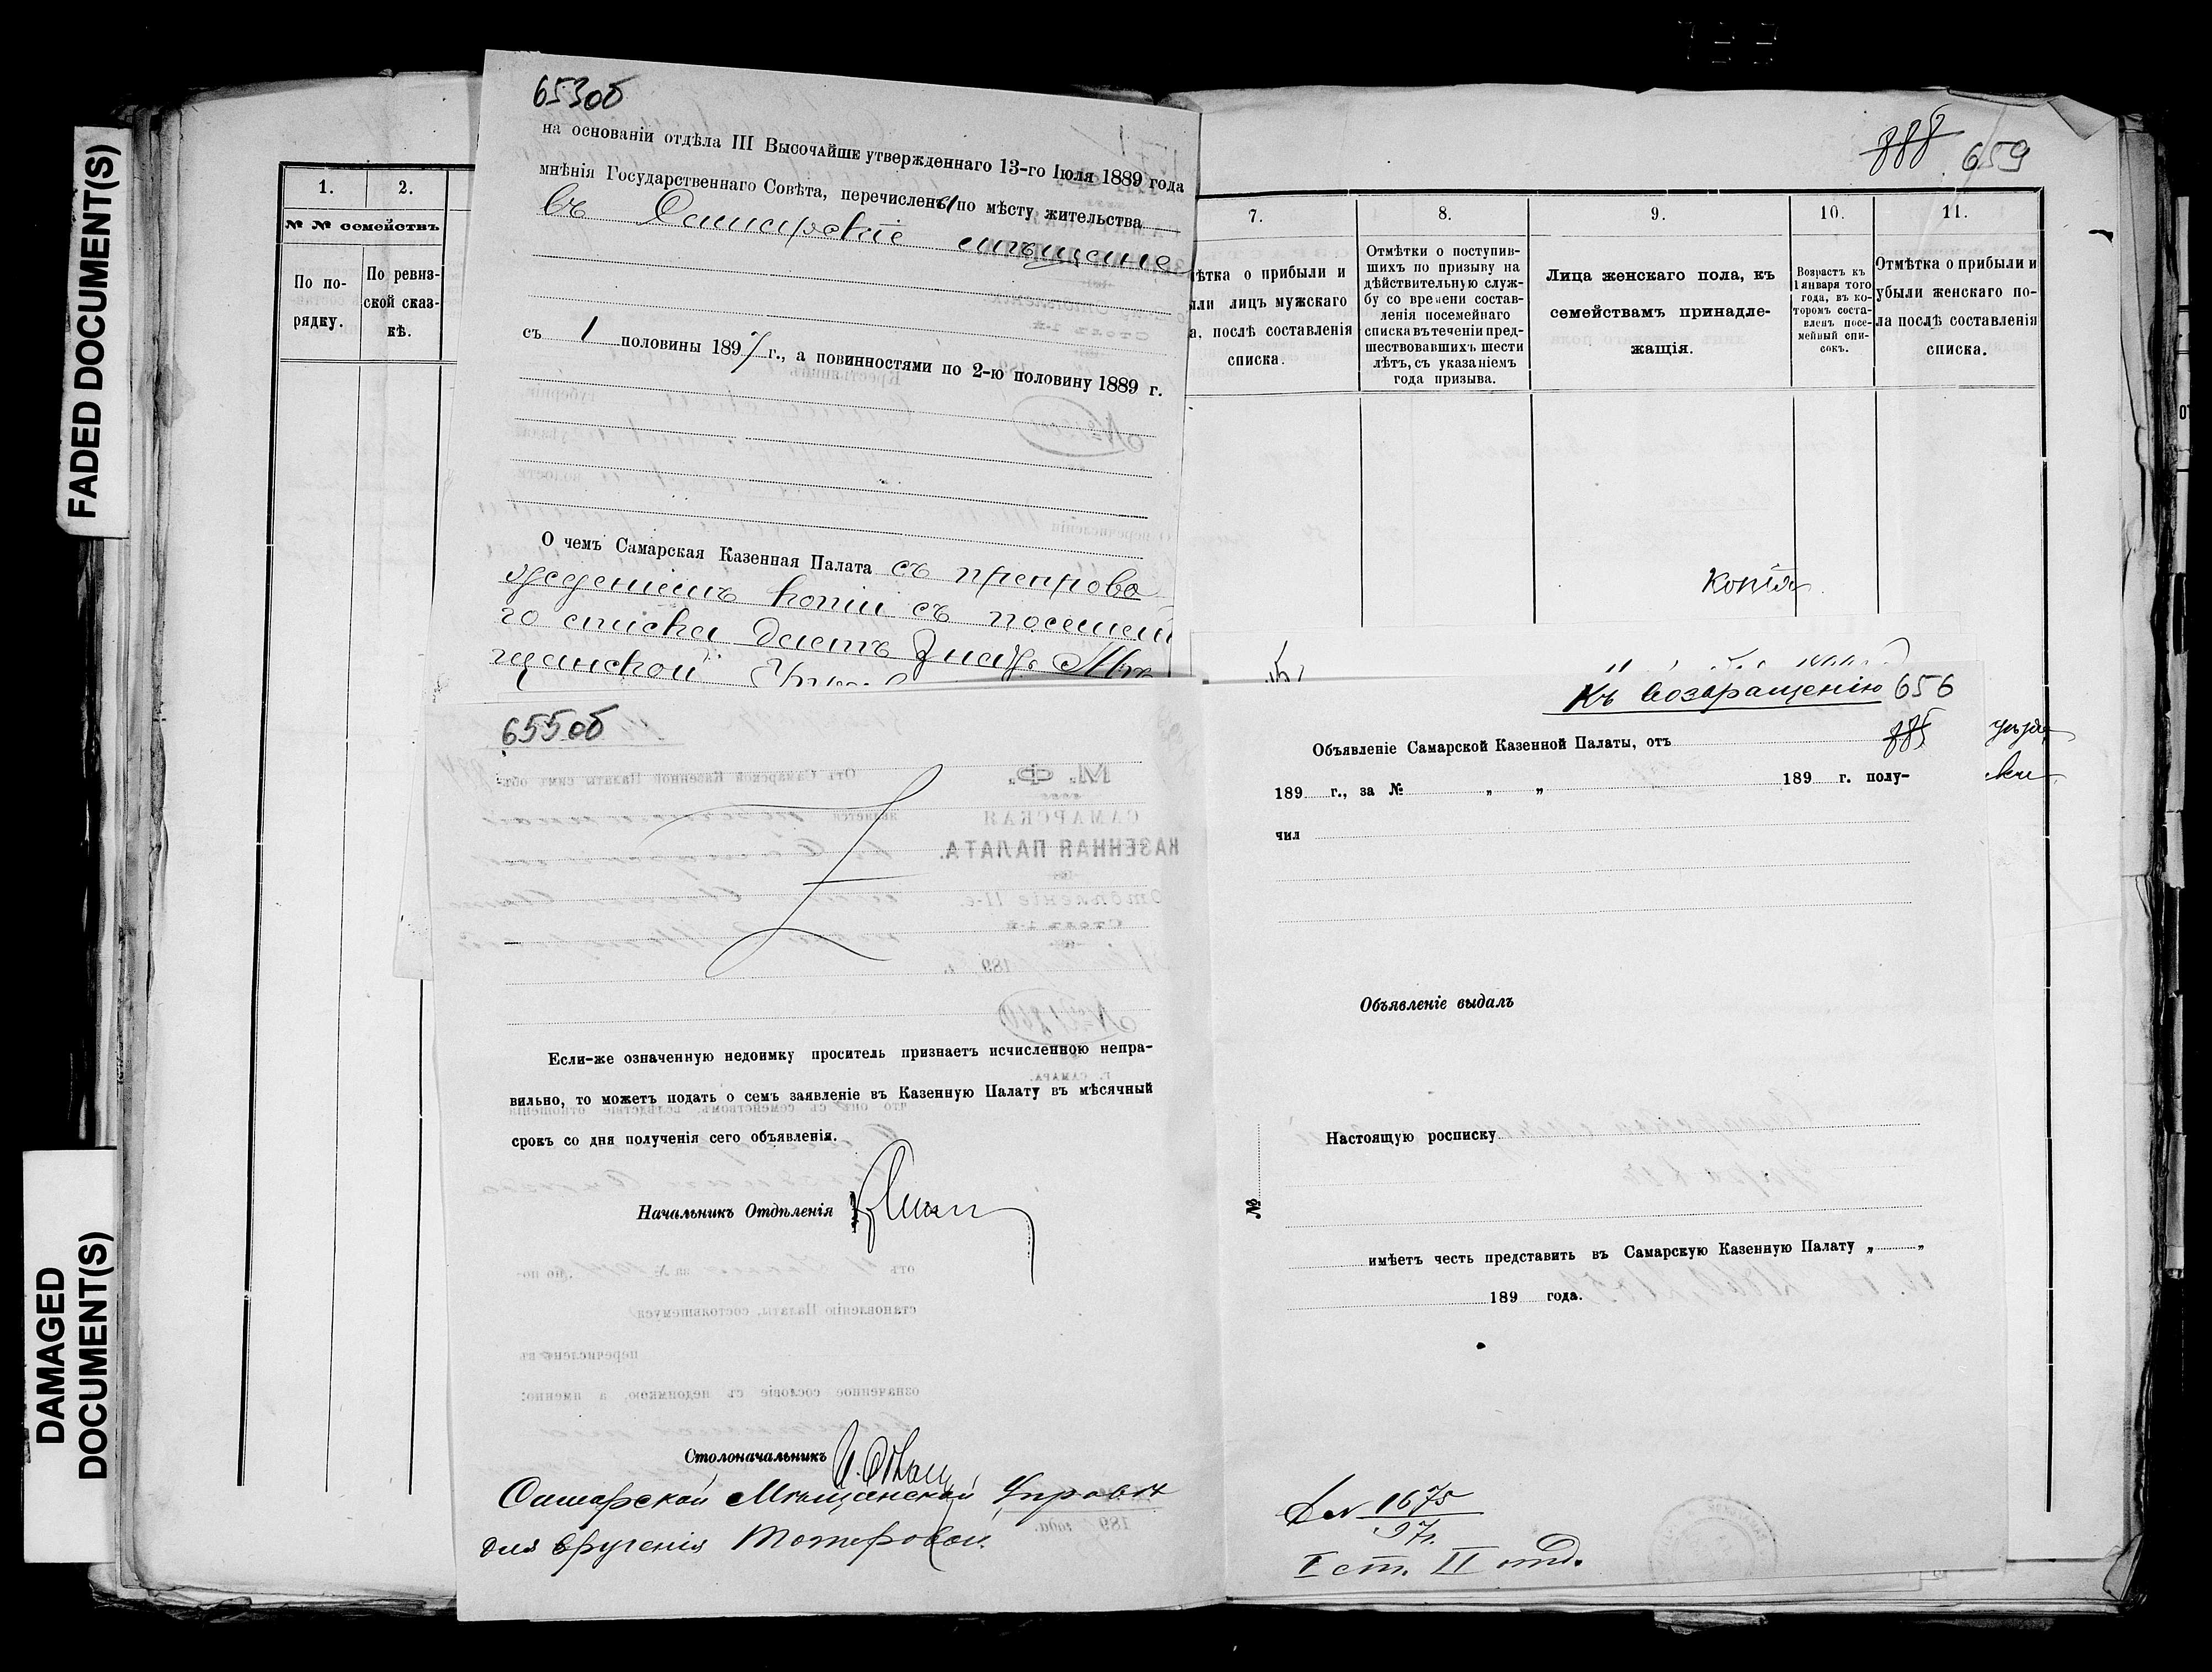 FADED DOCUMENT(S)
DAMAGED
DOCUMENT(S)
1.
2.
№ № семействъ
По по-
рядку.
По ревиз-
ской сказ-
кѣ.
653об
на основаніи отдѣла III Высочайше утвержденнаго 13-го Іюля 1889 года
мнѣнія Государственнаго Совѣта, перечислены по мѣсту жительства
въ Самарскіе мѣщане
съ 1 половины 1897 г., а повинностями по 2-ю половину 1889 г.
О чемъ Самарская Казенная Палата съ препрово
жденіемъ копіи съ посемей
го списка даетъ знать Мѣ
щанской
888 659
7.
8.
9.
10.
11.
ѣтка о прибыли и
ли лицъ мужскаго
а, послѣ составленія
списка.
Отмѣтки о поступив-
шихъ по призыву на
дѣйствительную служ-
бу со времени состав-
ленія посемейнаго
списка въ теченіи пред-
шествовавшихъ шести
лѣтъ, съ указаніемъ
года призыва.
Лица женскаго пола, къ
семействамъ принадле-
жащія.
Возрастъ къ
1 января того
года, въ ко-
торомъ соста-
вленъ посе-
мейный спи-
сокъ.
Отмѣтка о прибыли и
убыли женскаго по-
ла послѣ составленія
списка.
Копія
655об
Если-же означенную недоимку проситель признаетъ исчисленною непра-
вильно, то можетъ подать о семъ заявленіе въ Казенную Палату въ мѣсячный
срокъ со дня полученія сего объявленія.
Начальникъ Отдѣленія
Столоначальникъ
Самарской Мѣщанской Управѣ
для врученія
Къ возвращенію 656
885
Объявленіе Самарской Казенной Палаты, отъ
189 г., за № „ „ 189 г. полу-
чил
Объявленіе выдалъ
Настоящую росписку
№
имѣетъ честь представить въ Самарскую Казенную Палату „ „
189 года.
1675
97г.
I ст. II отд.